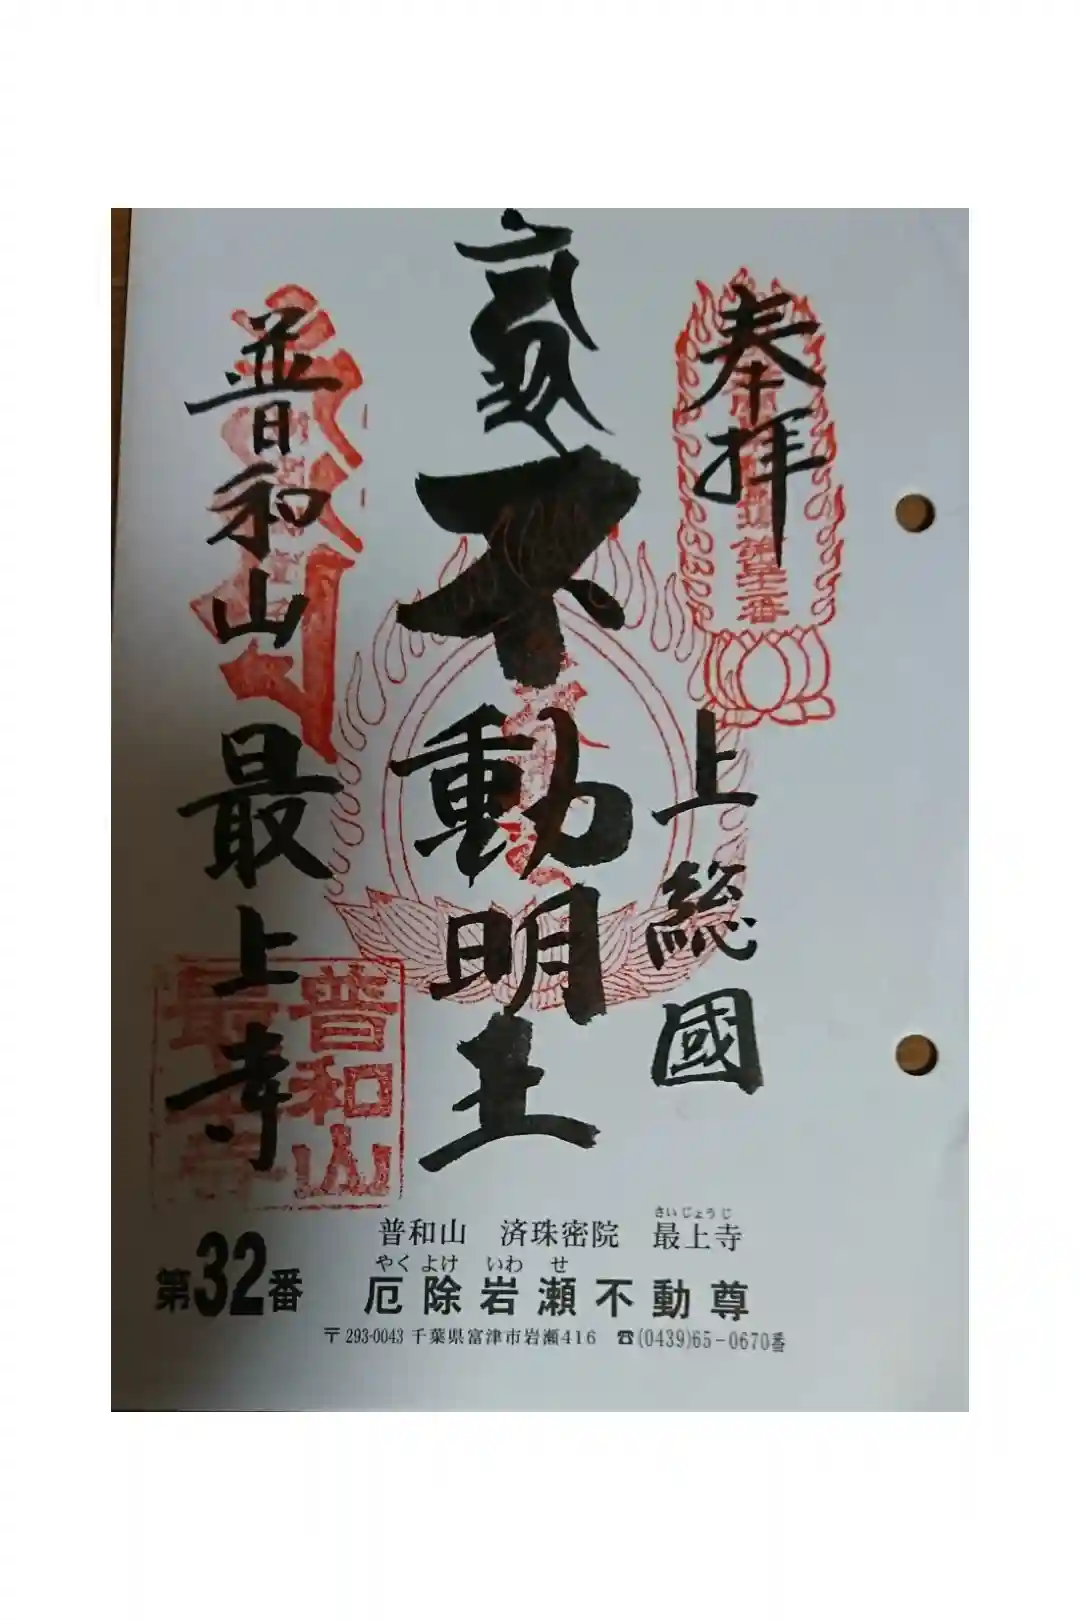 奉拝
上総國
不動明王
普和山
最上寺
普和山
最上寺
第十二番
第32番
普和山 済珠密院 最上寺
さいじょうじ
やくよけ いわ せ
厄除岩瀬不動尊
〒293-0043 千葉県富津市岩瀬416 ☎(0439)65-0670番